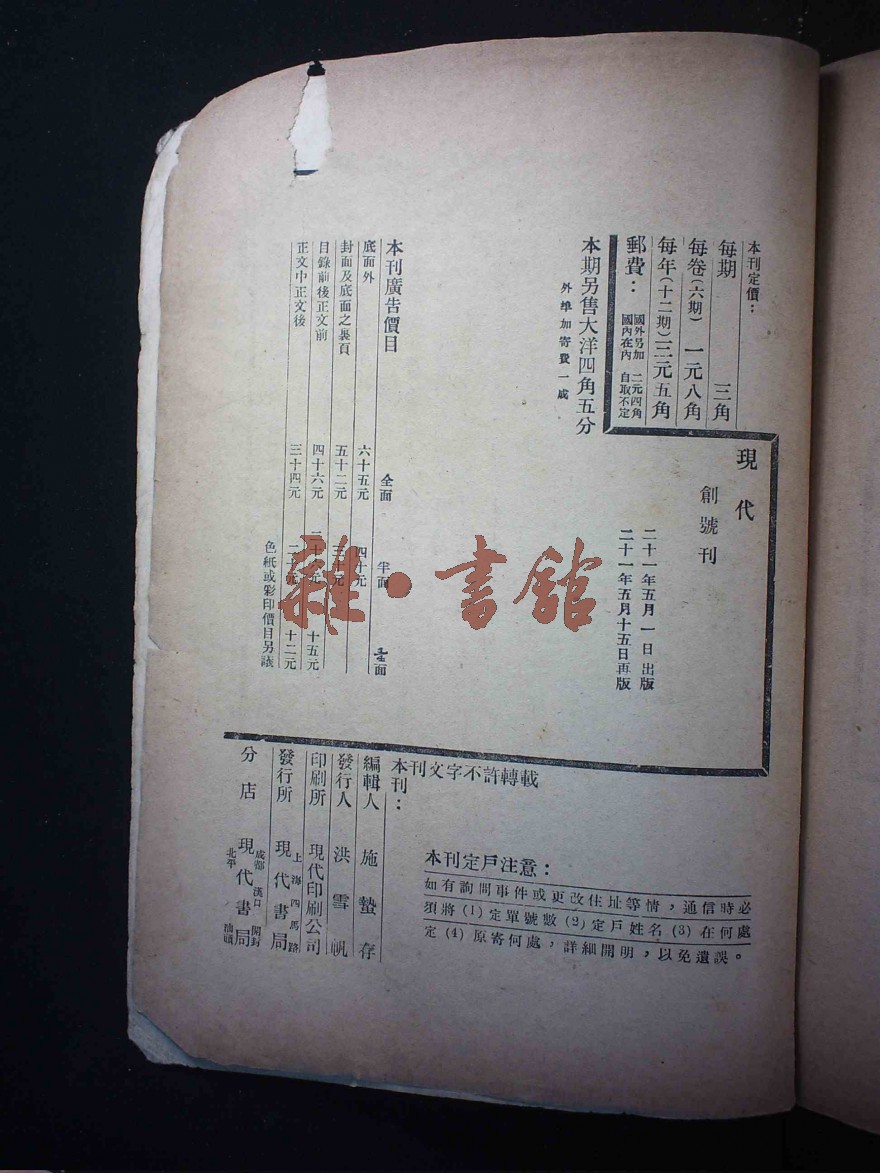 本刊定價：
每期 三角
每卷（六期） 一元八角
每年（十二期）三元五角
郵費：
國外另加 二元四角
國內在內 自取不定
本期另售大洋四角五分
外埠加寄費一成
現代
創號刊
二十一年五月一日出版
二十一年五月十五日再版
本刊廣告價目
全面 半面 面
底面外 六十五元 四十元
封面及底面之裏頁 五十二元 三十元
目錄前後正文前 四十六元 二十 元 十五元
正文中正文後 三十四元 二十元 十二元
色紙或彩印價目另議
雜·書館
本刊文字不許轉載
本刊：
編輯人 施蟄存
發行人 洪雪帆
印刷所 現代印刷公司
發行所 上海四馬路 現代書局
分店 成都 漢口 開封 北平 現代書局
本刊定戶注意：
如有詢問事件或更改住址等情，通信時必
須將(1)定單號數(2)定戶姓名(3)在何處
定(4)原寄何處，詳細開明，以免遺誤。